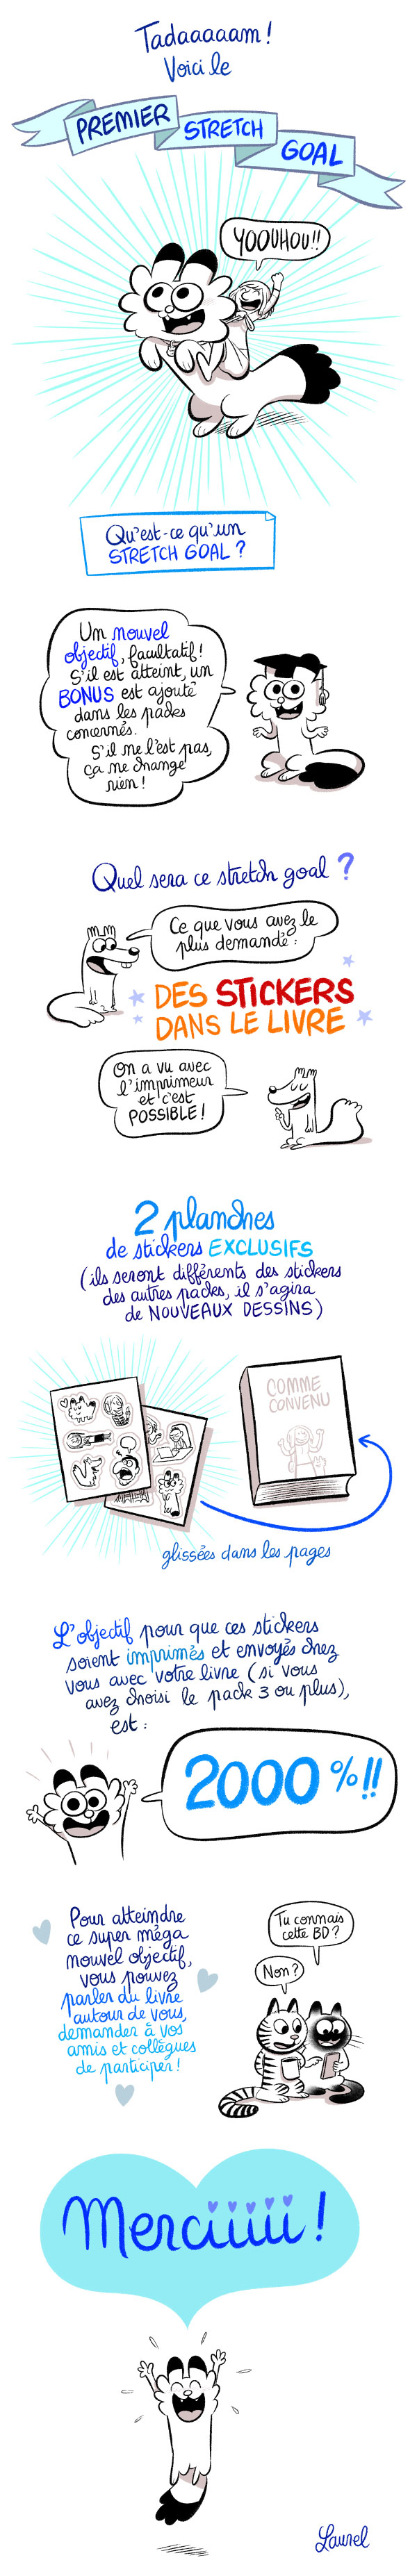 Tadaaaaam !
Voici le
PREMIER
STRETCH
GOAL
YOOUHOU!!
Qu'est-ce qu'un
STRETCH GOAL ?
Un nouvel
objectif, facultatif !
S'il est atteint, un
BONUS est ajouté
dans les packs
concernés.
S'il ne l'est pas,
ça ne change
rien !
Quel sera ce stretch goal ?
Ce que vous avez le
plus demandé :
DES STICKERS
DANS LE LIVRE
On a vu avec
l'imprimeur
et c'est
POSSIBLE !
2 planches
de stickers EXCLUSIFS
(ils seront différents des stickers
des autres packs, il s'agira
de NOUVEAUX DESSINS)
COMME
CONVENU
glissées dans les pages
L'objectif pour que ces stickers
soient imprimés et envoyés chez
vous avec votre livre (si vous
avez choisi le pack 3 ou plus),
est :
2000 %!!
Pour atteindre
ce super méga
nouvel objectif,
vous pouvez
parler du livre
autour de vous,
demander à vos
amis et collègues
de participer !
Tu connais
cette BD ?
Non ?
Merciiiii !
Laurel